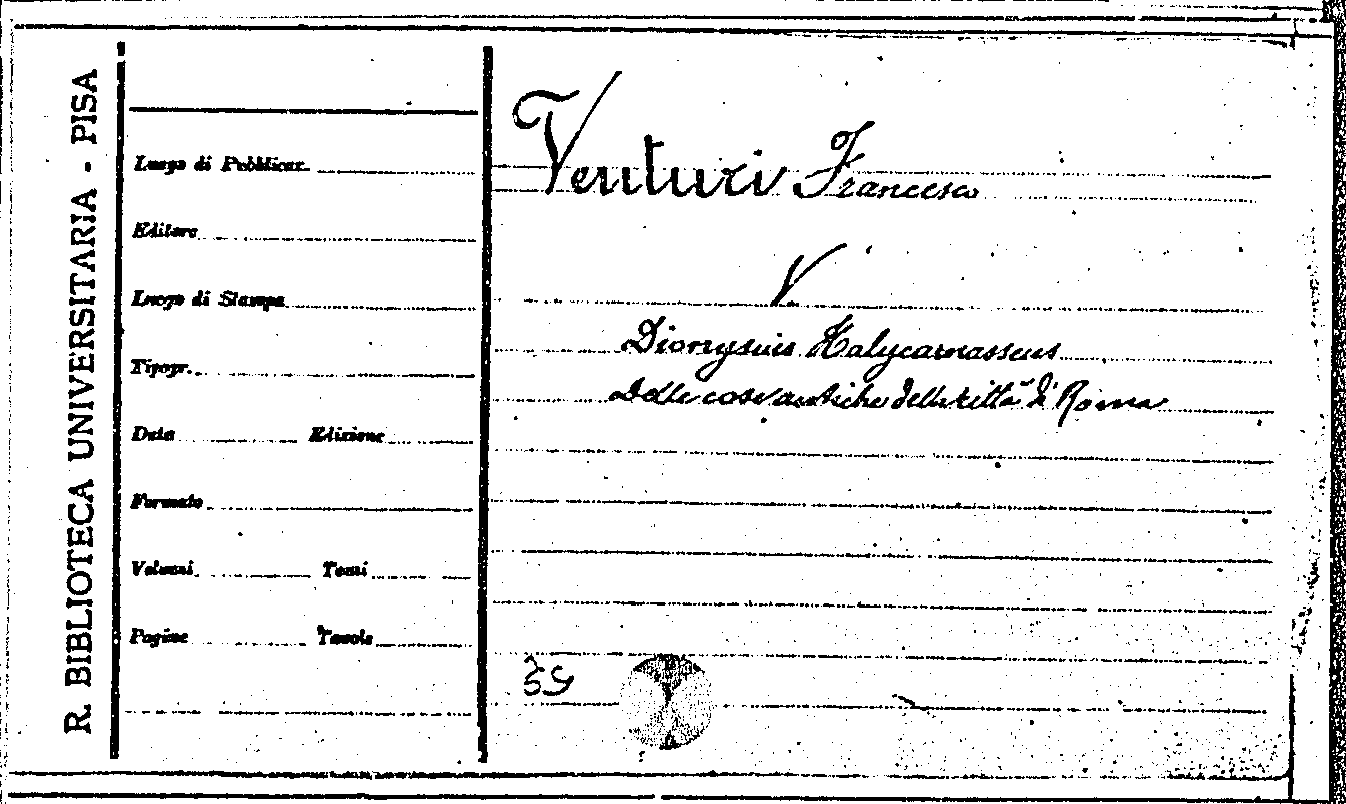 R. BIBLIOTECA UNIVERSITARIA - PISA
Luogo di Pubblicaz.
Editore
Luogo di Stampa
Tipogr.
Data Edizione
Formato
Volumi Tomi
Pagine Tavole
Venturi Francesco
V
Dionysius Halycarnasseus
Delle cose antiche della città di Roma